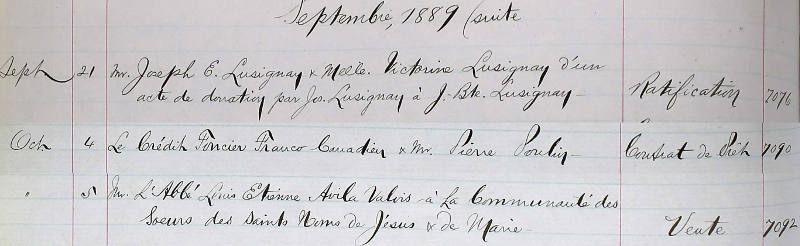 Septembre, 1889 (suite
Sept 21 Mr. Joseph E. Lusignay & Melle. Victorine Lusignay d'un
acte de donation par Jos. Lusignay à J.-Bte. Lusignay - Ratification 7076
Oct 4 Le Crédit Foncier Franco-Canadien & Mr. Pierre Poulin - Contrat de Prêt 7090
" 5 Mr. L'Abbé Louis Etienne Avila Valois à La Communauté des
Soeurs des Saints Noms de Jésus & de Marie - Vente 7092